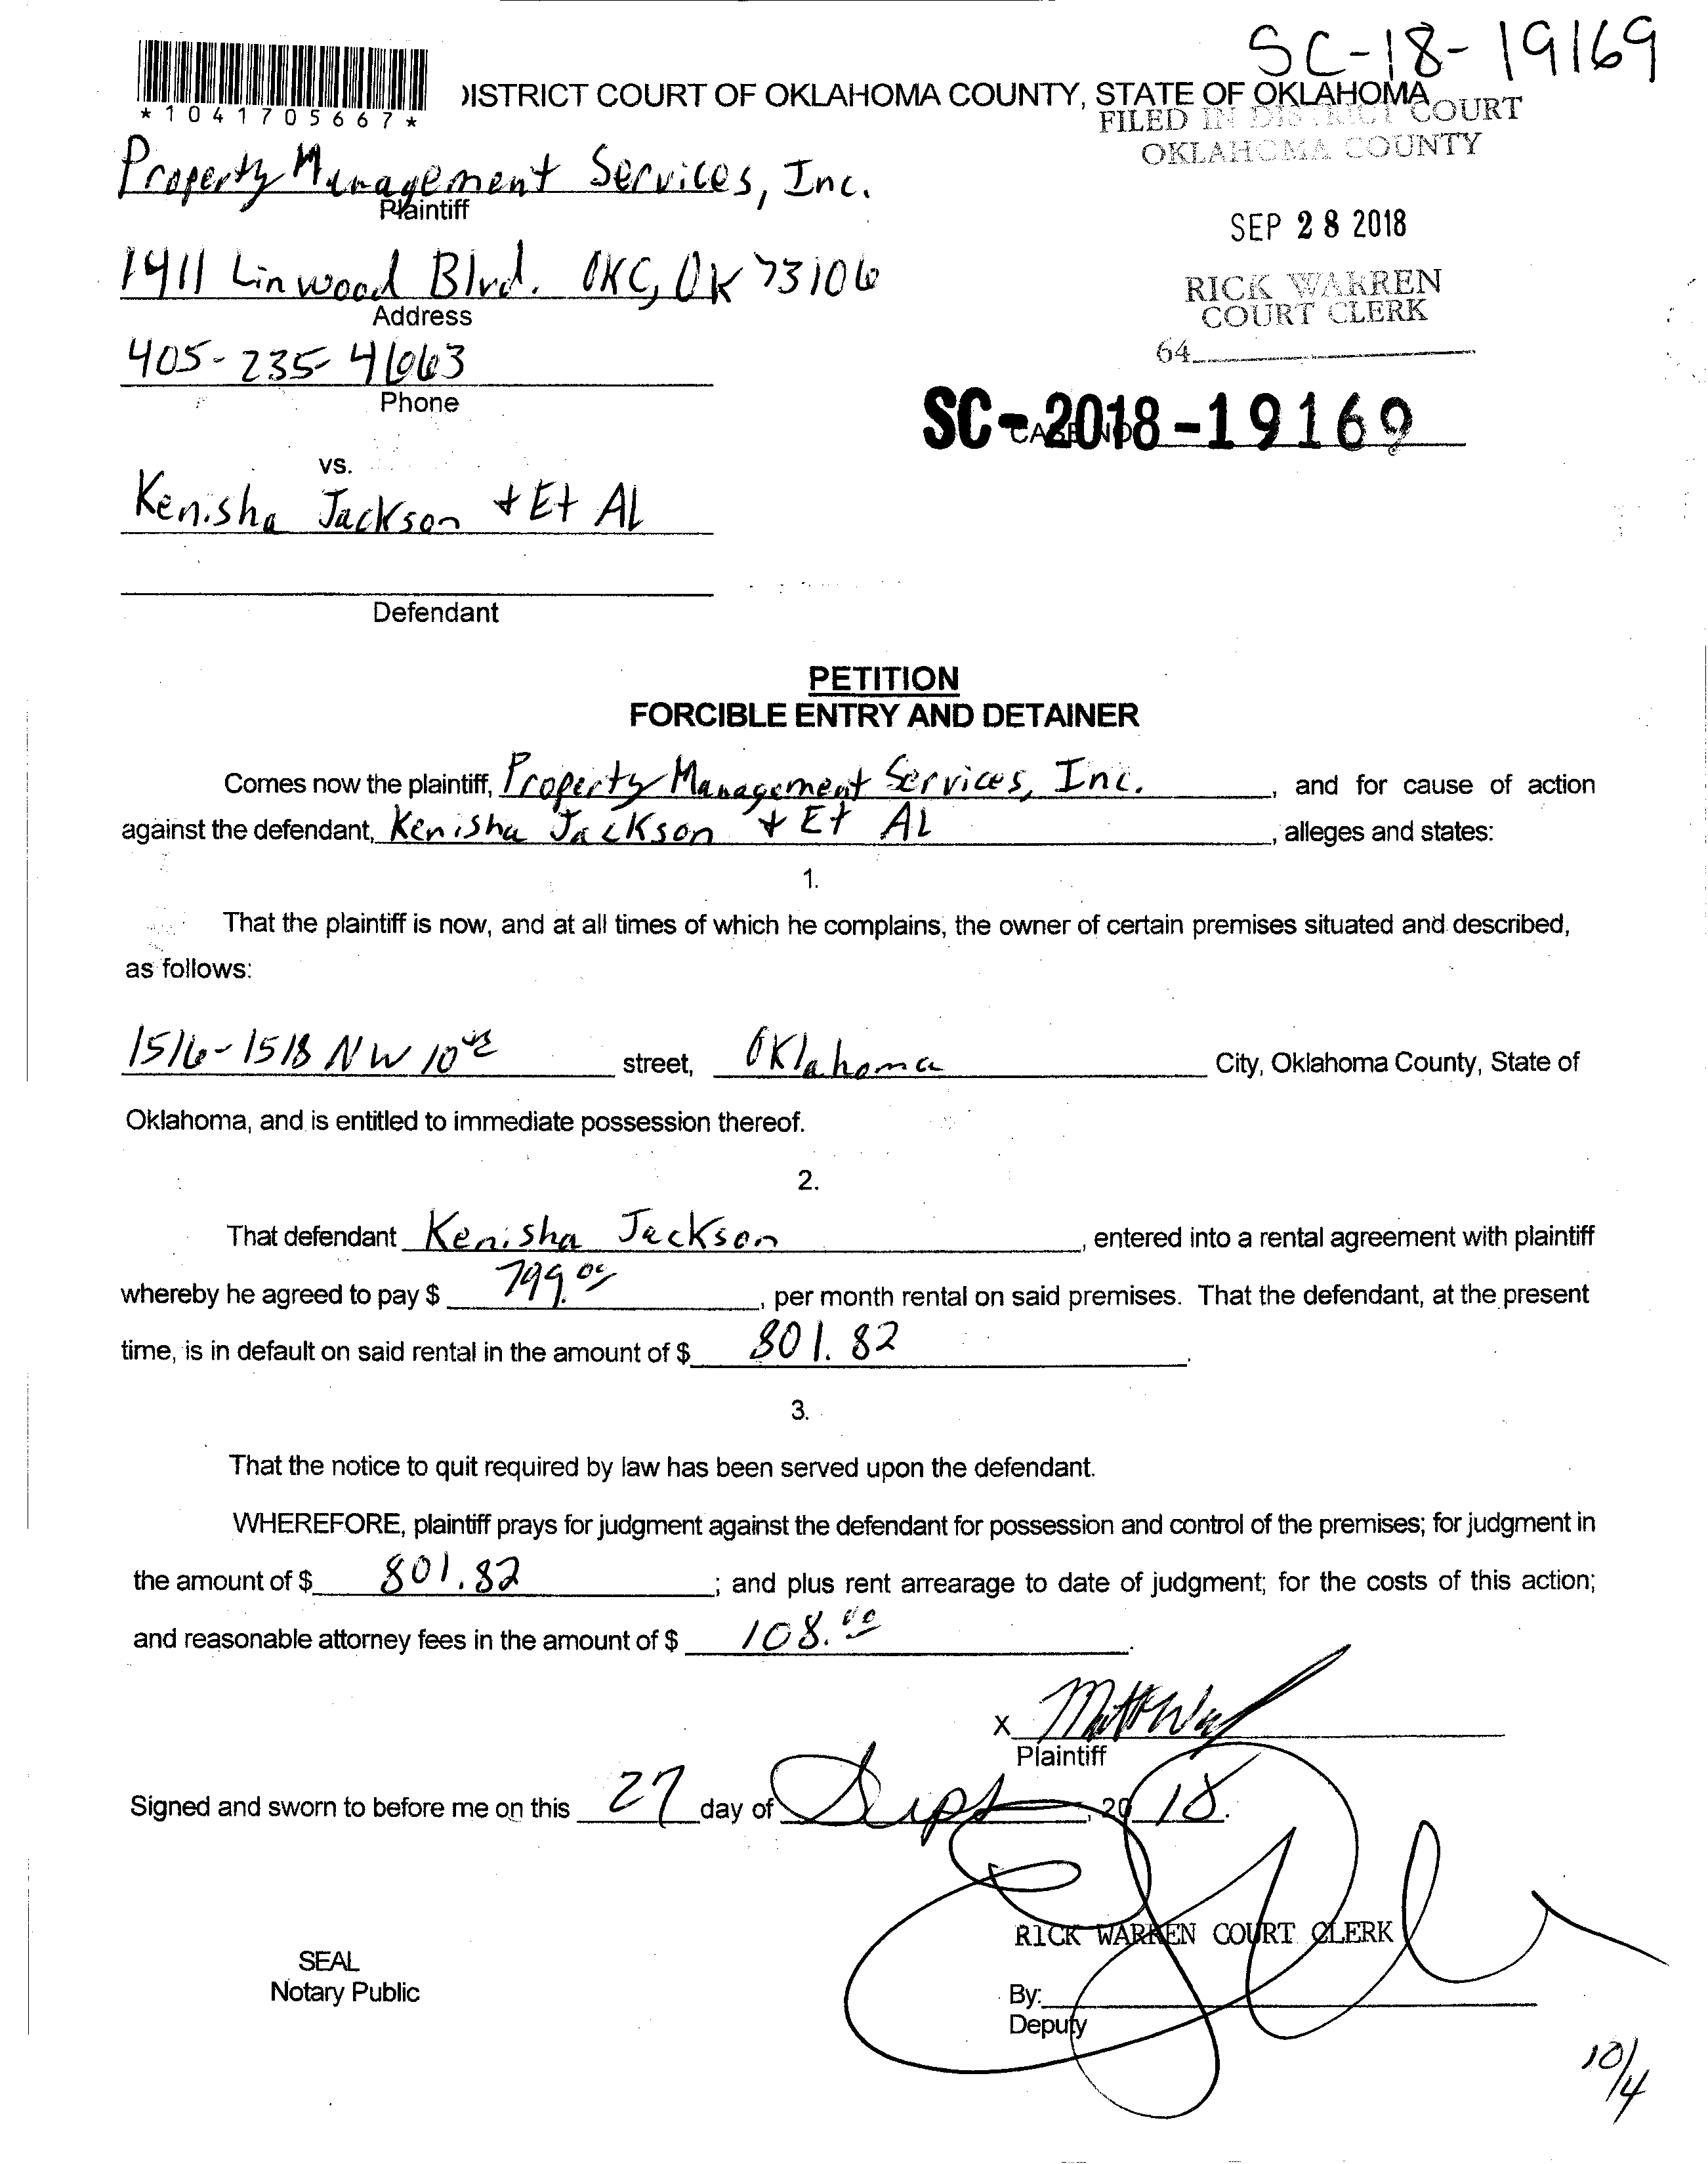 SC-18-19169
*1041705667*
DISTRICT COURT OF OKLAHOMA COUNTY, STATE OF OKLAHOMA
FILED IN DISTRICT COURT
OKLAHOMA COUNTY
Property Management Services, Inc.
Plaintiff
SEP 28 2018
1411 Linwood Blvd. OKC, OK 73106
Address
RICK WARREN
COURT CLERK
405-235-4663
Phone
64
SC-2018-19169
CASE NO.
vs.
Kenisha Jackson + Et Al
Defendant
PETITION
FORCIBLE ENTRY AND DETAINER
Comes now the plaintiff, Property Management Services, Inc., and for cause of action
against the defendant, Kenisha Jackson + Et AL, alleges and states:
1.
That the plaintiff is now, and at all times of which he complains, the owner of certain premises situated and described,
as follows:
1516-1518 NW 10th street, Oklahoma City, Oklahoma County, State of
Oklahoma, and is entitled to immediate possession thereof.
2.
That defendant Kenisha Jackson, entered into a rental agreement with plaintiff
whereby he agreed to pay $ 799.00, per month rental on said premises. That the defendant, at the present
time, is in default on said rental in the amount of $ 801.82.
3.
That the notice to quit required by law has been served upon the defendant.
WHEREFORE, plaintiff prays for judgment against the defendant for possession and control of the premises; for judgment in
the amount of $ 801.82; and plus rent arrearage to date of judgment; for the costs of this action;
and reasonable attorney fees in the amount of $ 108.00.
X
Plaintiff
Signed and sworn to before me on this 27 day of Sept, 2018.
RICK WARREN COURT CLERK
SEAL
Notary Public
By:
Deputy
10/4